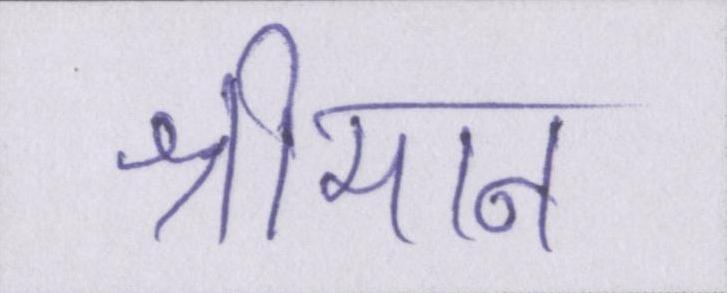 श्रीमान